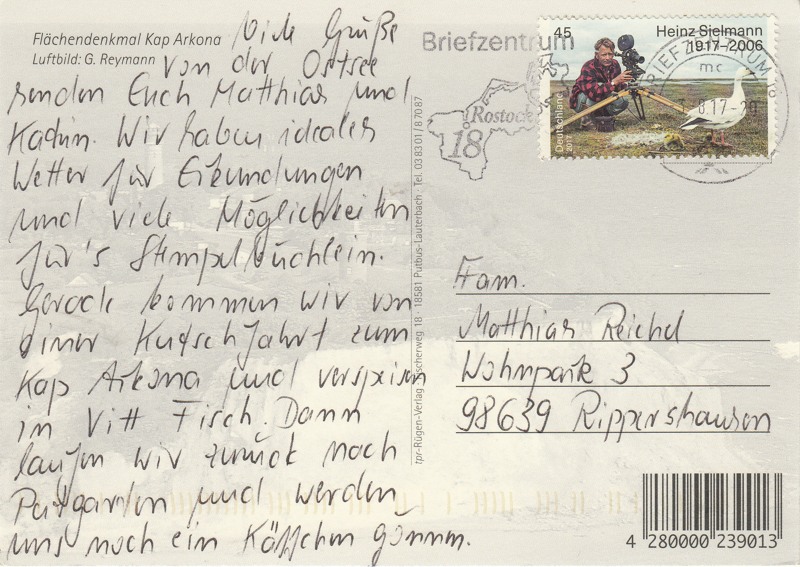 Flächendenkmal Kap Arkona
Luftbild: G. Reymann
Viele Grüße
von der Ostsee
senden Euch Matthias und
Katrin. Wir haben ideales
Wetter für Erkundungen
und viele Möglichkeiten
für's Stempelbüchlein.
Gerade kommen wir von
einer Kutschfahrt zum
Kap Arkona und verspeisen
in Vitt Fisch. Dann
laufen wir zurück nach
Puttgarten und werden
uns noch ein Käffchen gönnen.
tpr-Rügen-Verlag · Fischerweg 18 · 18581 Putbus-Lauterbach · Tel. 03 83 01 / 8 70 87
Briefzentrum
Rostock
18
45
Heinz Sielmann
1917–2006
Deutschland
BRIEFZENTRUM
mc
8.17-20
Fam.
Matthias Reichel
Wohnpark 3
98639 Rippershausen
4 280000 239013